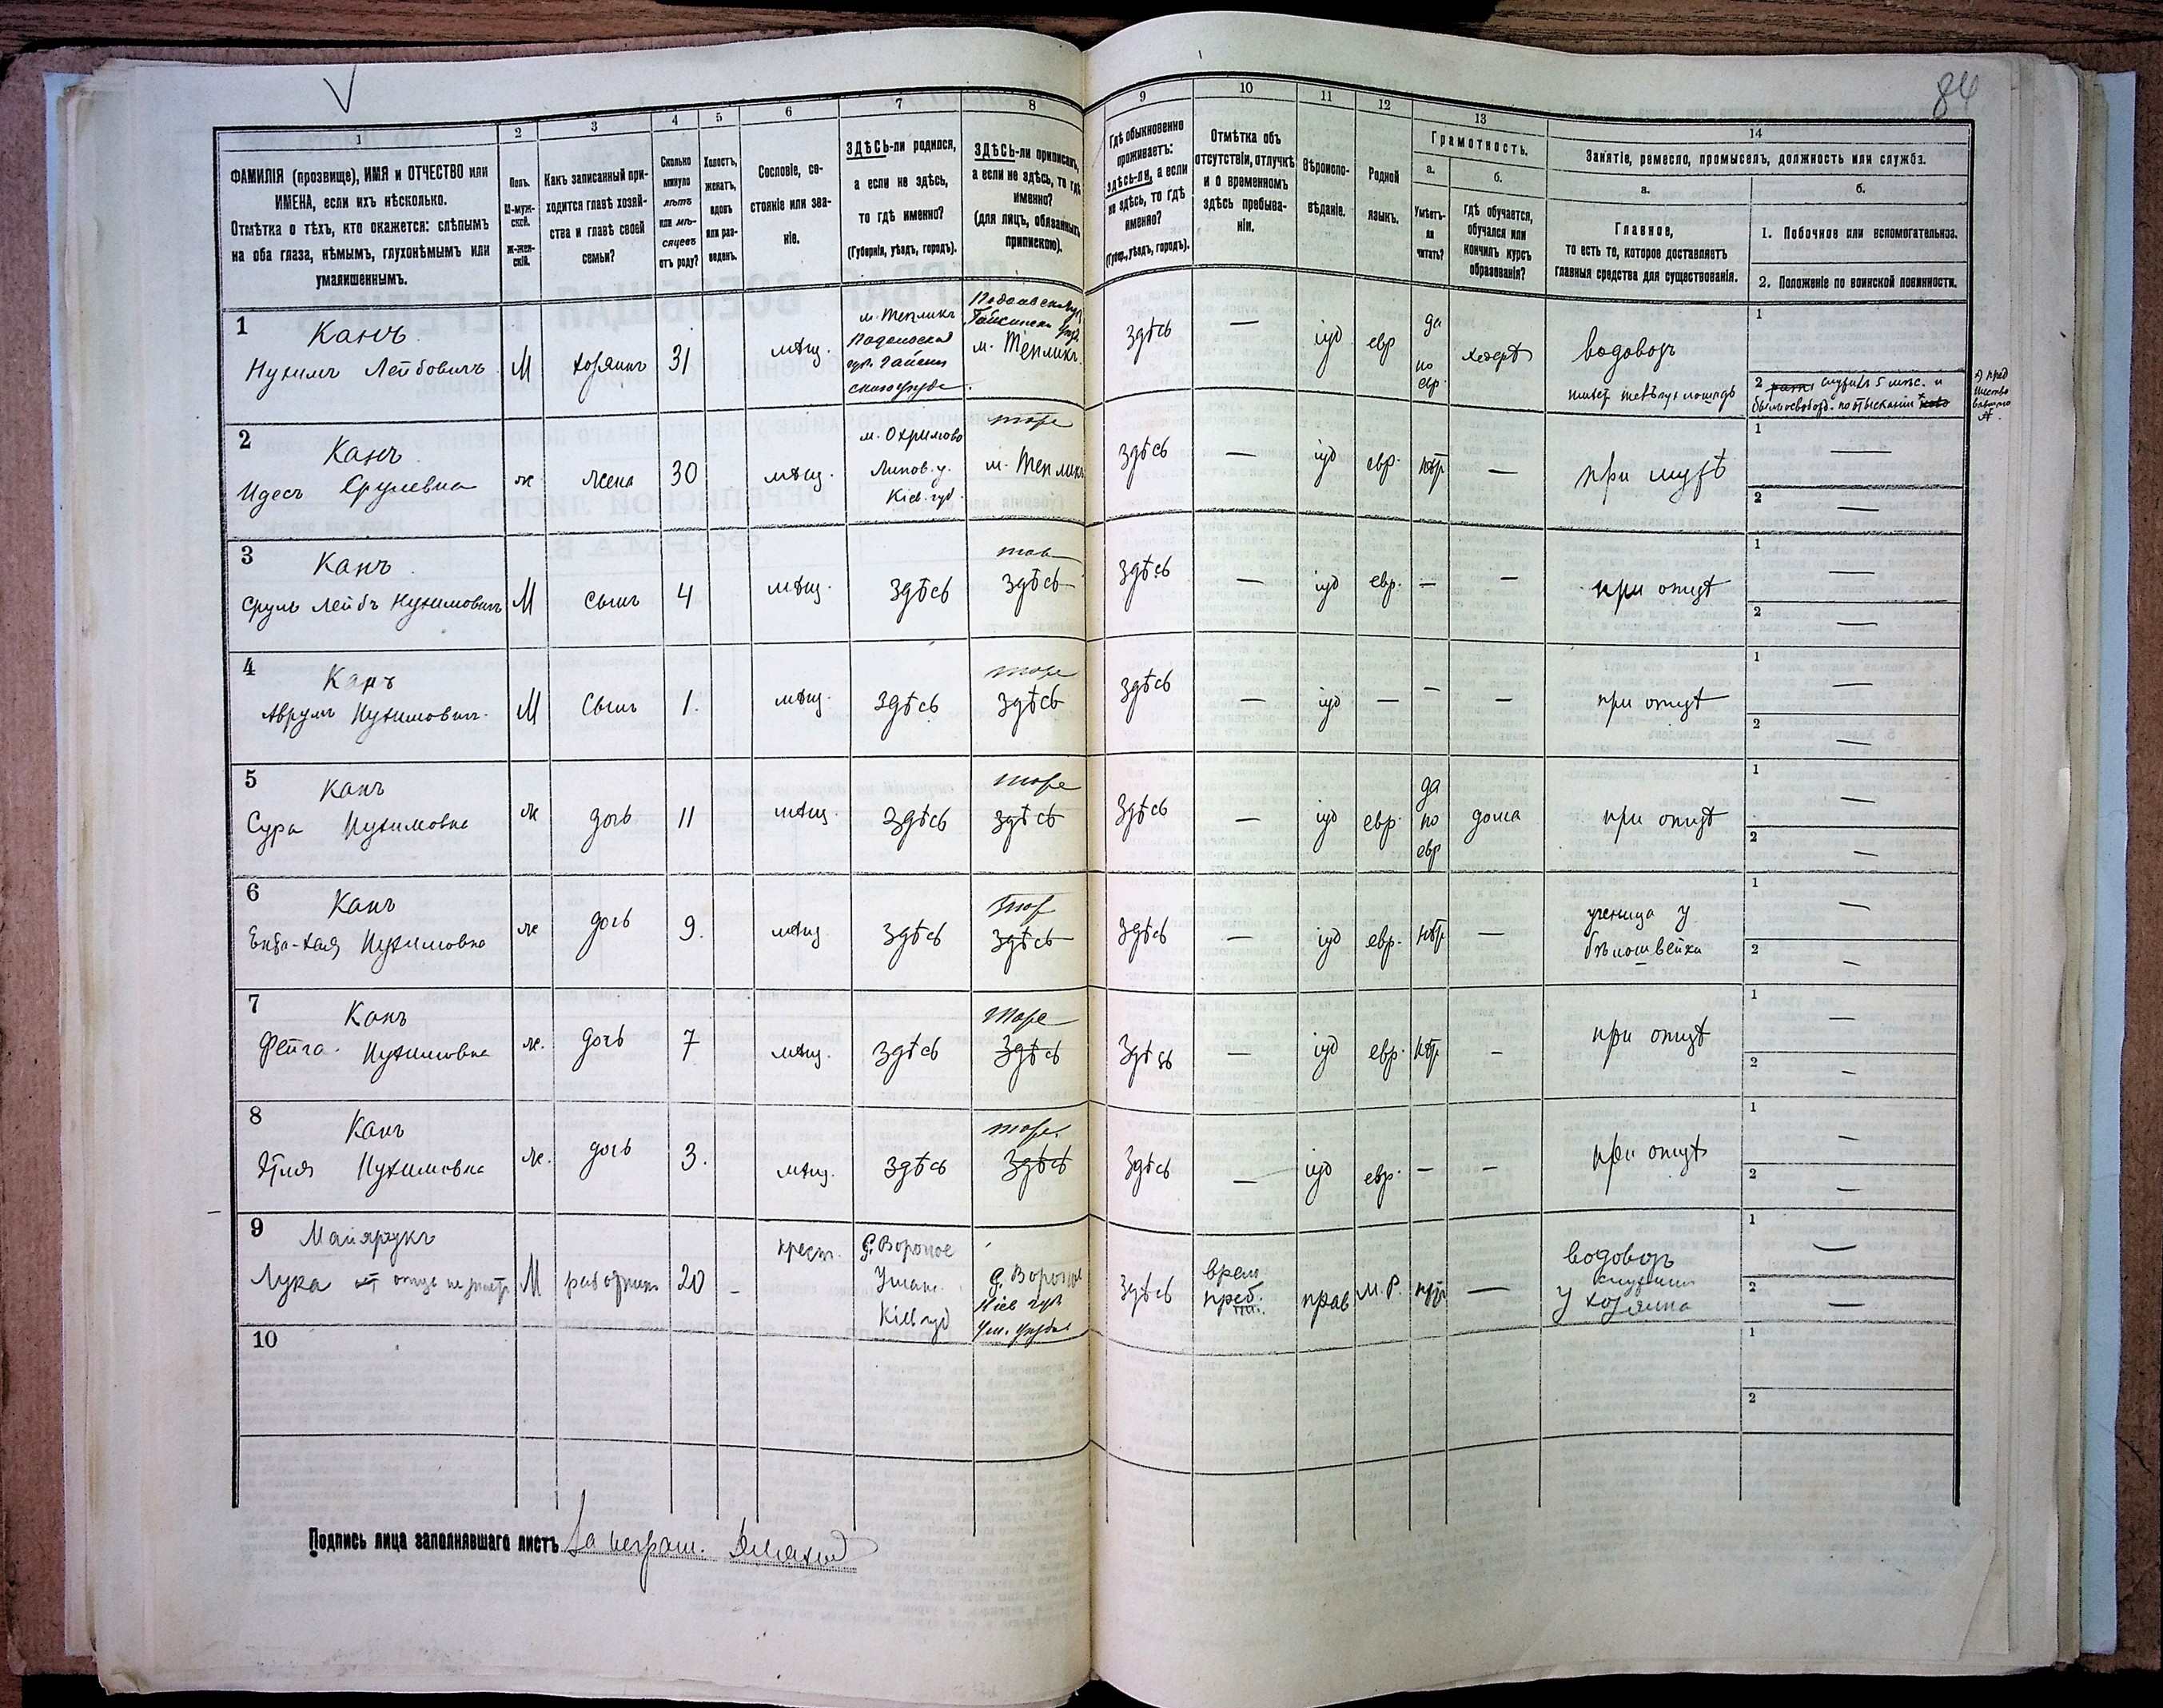 84
1
2
3
4
5
6
7
8
9
10
11
12
13
14
ФАМИЛІЯ (прозвище), ИМЯ и ОТЧЕСТВО или
ИМЕНА, если ихъ нѣсколько.
Отмѣтка о тѣхъ, кто окажется: слѣпымъ
на оба глаза, нѣмымъ, глухонѣмымъ или
умалишеннымъ.
Полъ.
М-муж-
ской.
Ж-жен-
скій.
Какъ записанный при-
ходится главѣ хозяй-
ства и главѣ своей
семьи?
Сколько
минуло
лѣтъ
или мѣ-
сяцевъ
отъ роду?
Холостъ,
женатъ,
вдовъ
или раз-
веденъ.
Сословіе, со-
стояніе или зва-
ніе.
ЗДѢСЬ-ли родился,
а если не здѣсь,
то гдѣ именно?
(Губернія, уѣздъ, городъ).
ЗДѢСЬ-ли приписанъ,
а если не здѣсь, то гдѣ
именно?
(для лицъ, обязанныхъ
припискою).
Гдѣ обыкновенно
проживаетъ:
здѣсь-ли, а если
не здѣсь, то гдѣ
именно?
(Губер., уѣздъ, городъ).
Отмѣтка объ
отсутствіи, отлучкѣ
и о временномъ
здѣсь пребыва-
ніи.
Вѣроиспо-
вѣданіе.
Родной
языкъ.
Грамотность.
а.
Умѣетъ-
ли
читать?
б.
гдѣ обучается,
обучался или
кончилъ курсъ
образованія?
Занятіе, ремесло, промыселъ, должность или служба.
а.
Главное,
то есть то, которое доставляетъ
главныя средства для существованія.
б.
1. Побочное или вспомогательное.
2. Положеніе по воинской повинности.
1
Канъ
Нухимъ Лейбовичъ
М
хозяинъ
31
мѣщ.
м. Тепликъ
Подольская
м. Тепликъ
здѣсь
—
іуд
евр
да
по
евр.
хедерѣ
водовозъ
1
2
2
Канъ
Идесъ Срулевна
ж
жена
30
мѣщ.
м. Охримово
Липов. у.
Кіев. губ.
тоже
м. Тепликъ
здѣсь
—
іуд
евр.
нѣт
—
при мужѣ
1 —
2 —
3
Канъ
Сруль Лейбъ Нухимовичъ
М
сынъ
4
мѣщ.
здѣсь
здѣсь
здѣсь
—
іуд
евр.
—
—
при отцѣ
1 —
2 —
4
Канъ
Аврумъ Нухимович.
М
сынъ
1.
мѣщ.
здѣсь
тоже
здѣсь
здѣсь
—
іуд
—
—
—
при отцѣ
1 —
2 —
5
Канъ
Сура Нухимовна
ж
дочь
11
мѣщ.
здѣсь
тоже
здѣсь
здѣсь
—
іуд
евр.
да
по
евр
дома
при отцѣ
1 —
2 —
6
Канъ
Нухимовна
ж
дочь
9.
мѣщ
здѣсь
здѣсь
здѣсь
—
іуд
евр.
нѣт
—
ученица у
бѣлошвейки
1 —
2 —
7
Канъ
Фейга Нухимовна
ж.
дочь
7
мѣщ.
здѣсь
тоже
здѣсь
здѣсь
—
іуд
евр.
нѣт
—
при отцѣ
1 —
2 —
8
Канъ
Нухимовна
ж.
дочь
3.
мѣщ.
здѣсь
тоже
здѣсь
здѣсь
—
іуд
евр.
—
—
при отцѣ
1 —
2 —
9
Лука
М
работникъ
20
—
крест.
с. Вороное
Уман.
Кіев губ
с. Вороное
Кіев губ
здѣсь
врем.
преб.
прав
М. Р.
нѣт
—
водовозъ
у хозяина
1 —
2 —
10
1
2
Подпись лица заполнявшаго листъ За неграм.